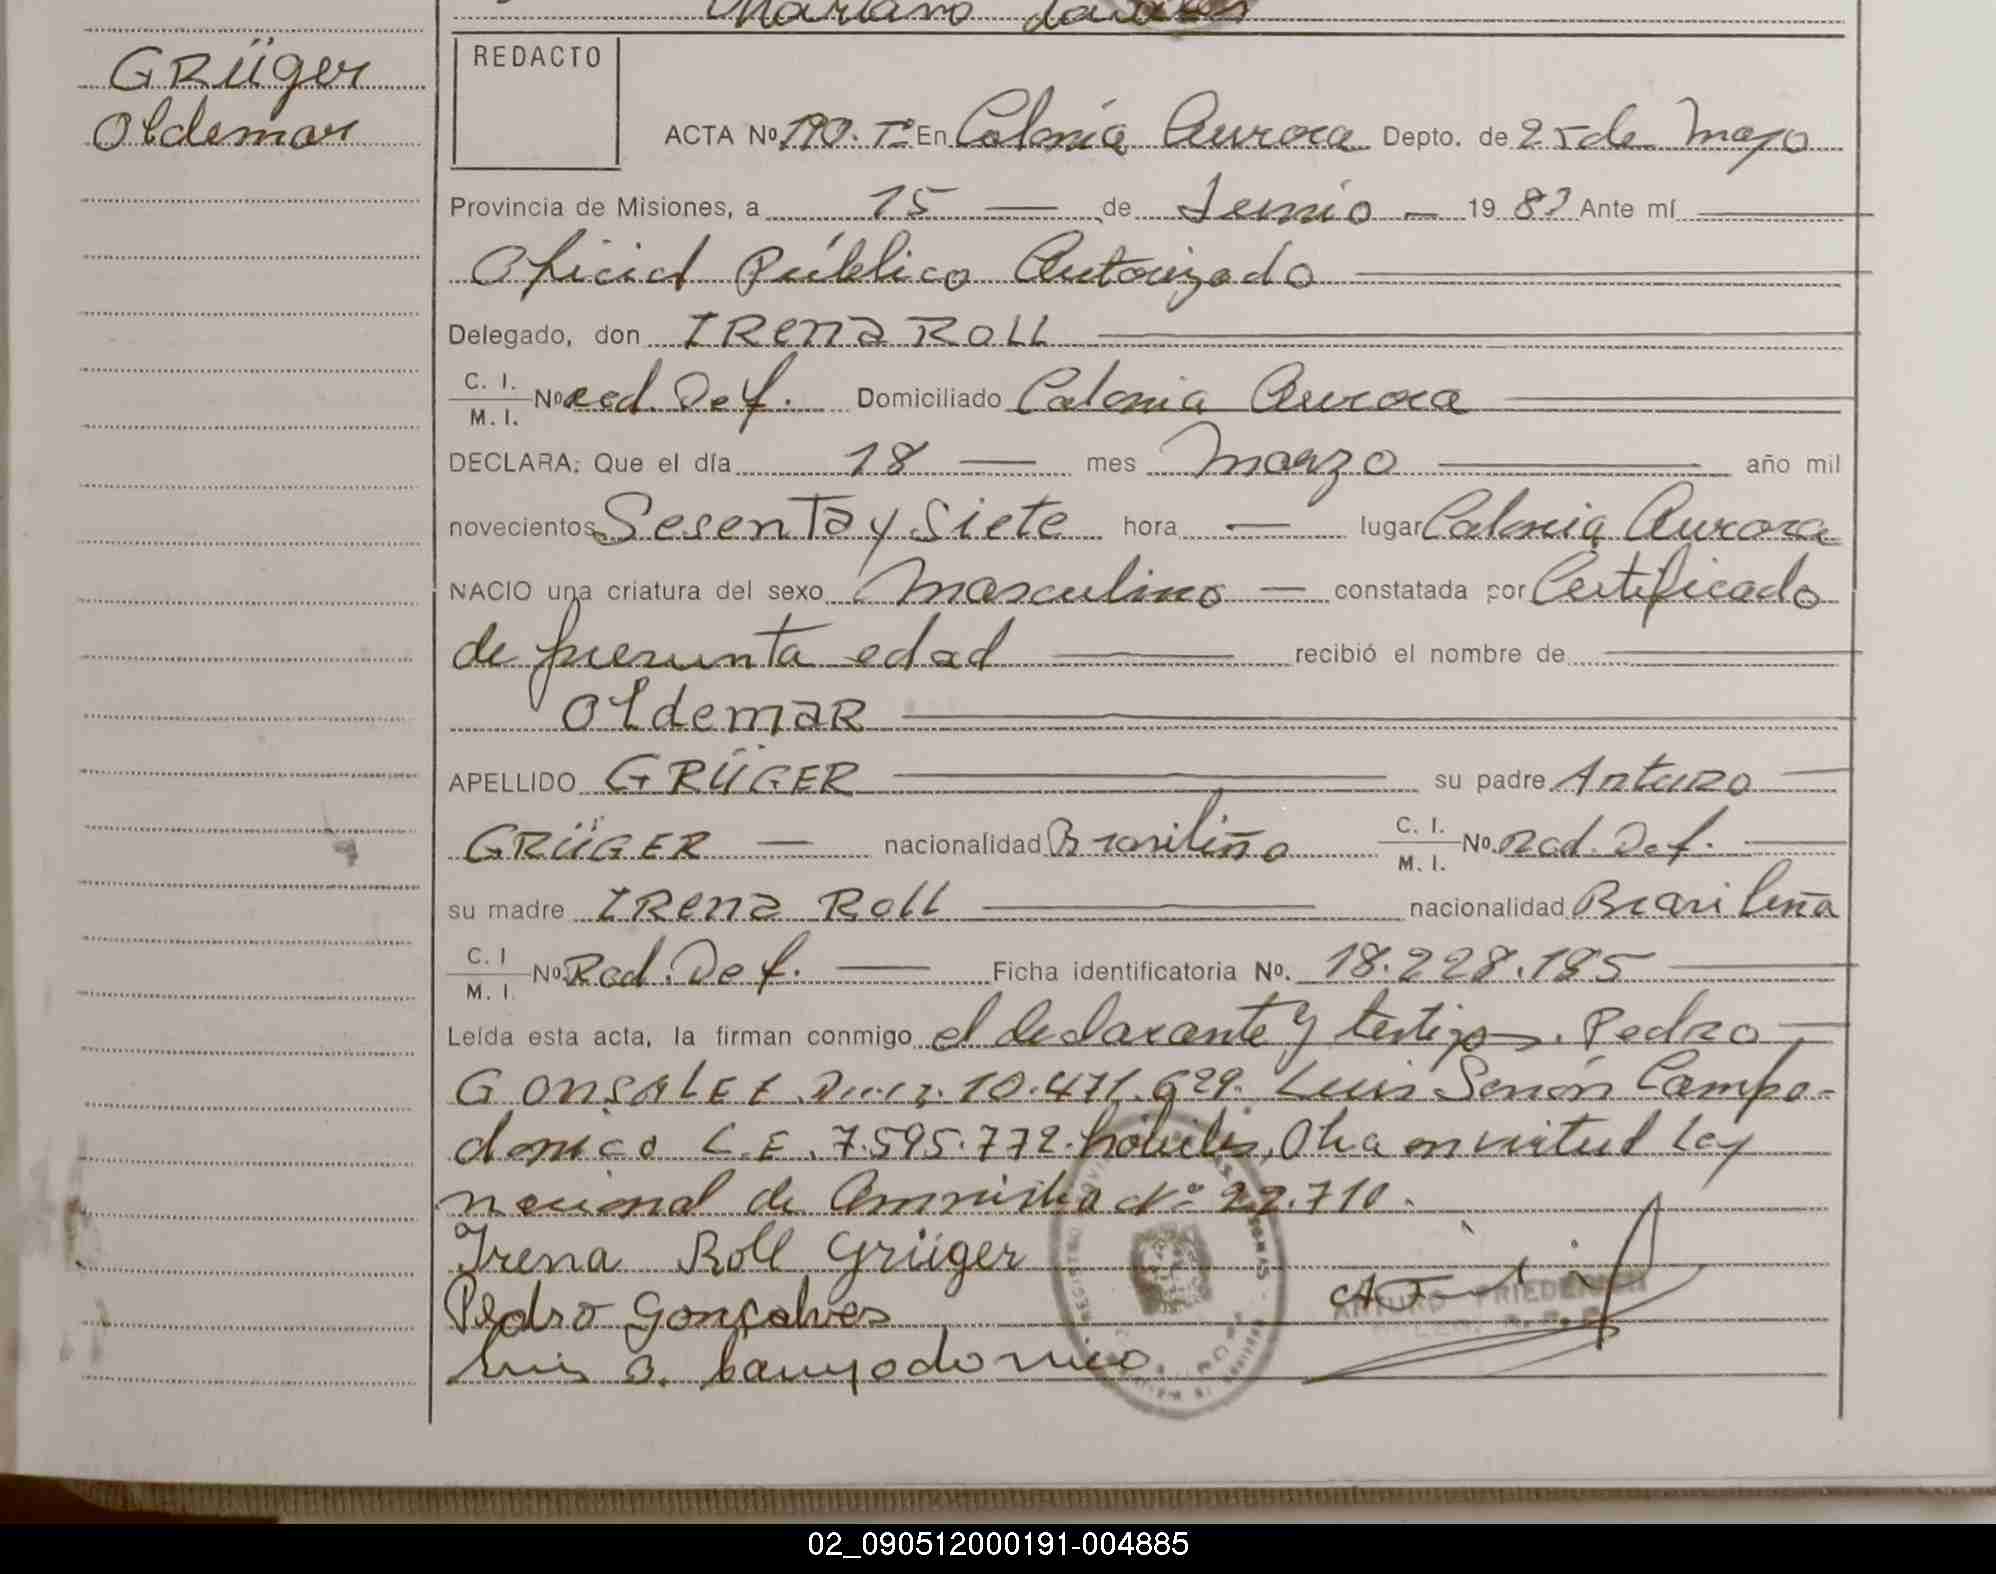 Mariano
GRÜger
Oldemar
REDACTO
ACTA Nº 190. Tº En Colonia Aurora Depto. de 25 de Mayo
Provincia de Misiones, a 15 — de Junio — 19 83 Ante mí —
Oficial Público Autorizado —
Delegado, don IRena ROLL —
C. I.
M. I. Nº Rad. Def. Domiciliado Colonia Aurora —
DECLARA: Que el día 18 — mes Marzo — año mil
novecientos Sesenta y Siete hora — lugar Colonia Aurora
NACIO una criatura del sexo Masculino — constatada por Certificado
de presunta edad — recibió el nombre de —
OldemaR —
APELLIDO GRÜGER — su padre Arturo —
GRÜGER — nacionalidad Brasileño C. I.
M. I. Nº Rad. Def. —
su madre IRena Roll — nacionalidad Brasileña
C. I
M. I. Nº Rad. Def. — Ficha identificatoria Nº. 18.228.185 —
Leída esta acta, la firman conmigo el declarante y testigos. Pedro —
GONSALEZ 10.471.629. Luis Senón Campo-
donico L.E. 7.595.772. hábiles, Otra en virtud Ley
nacional de Amnistia Nº 22.710.
Irena Roll Grüger
Pedro Gonçalves
Luis S. Campodonico
ARTURO FRIEDERICH
02_090512000191-004885